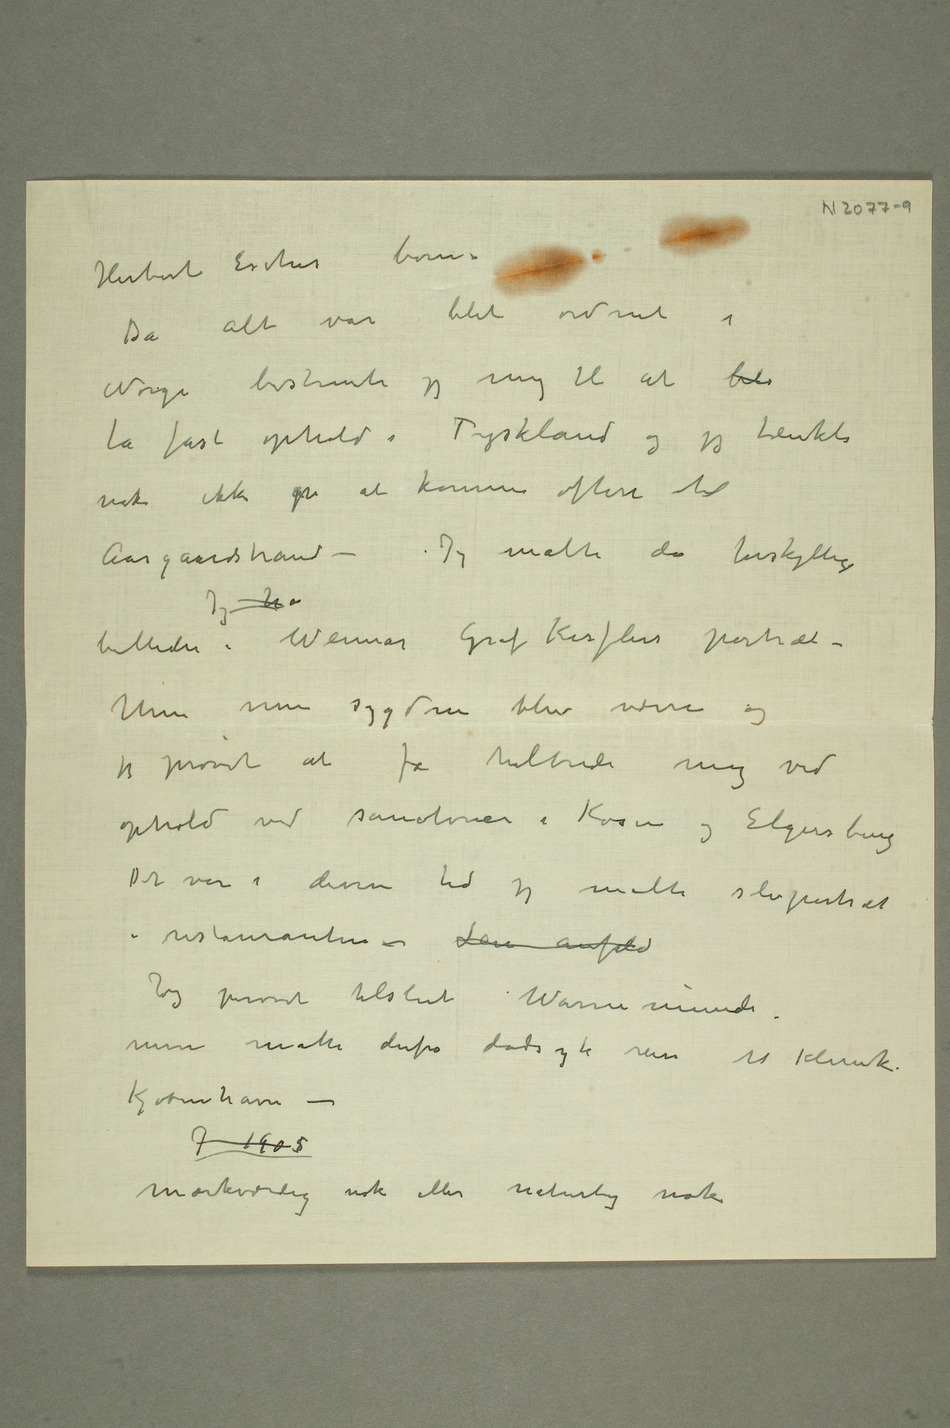 N 2077-9
Herbert Esches børn.
Da alt var blit ordnet i
Norge bestemte jeg mig til at blive
ta fast ophold i Tyskland og jeg tænkte
nok ikke på at komme oftere til
Aasgaardstrand – Jeg malte da forskjellige
Jeg ha
billeder i Weimar Graf Kesslers portræt –
Men min sygdom blev værre og
jeg prøvet at få helbrede mig ved
ophold ved sanatorier i Kösen og Elgersburg
Det var i denne tid jeg malte selvportræt
i restauranten –
Jeg prøvet tilslut Warnemünde.
men måtte derfra dødssyk reise til Klinik.
Kjøbenhavn –
I 1905
Mærkværdig nok eller naturlig nok